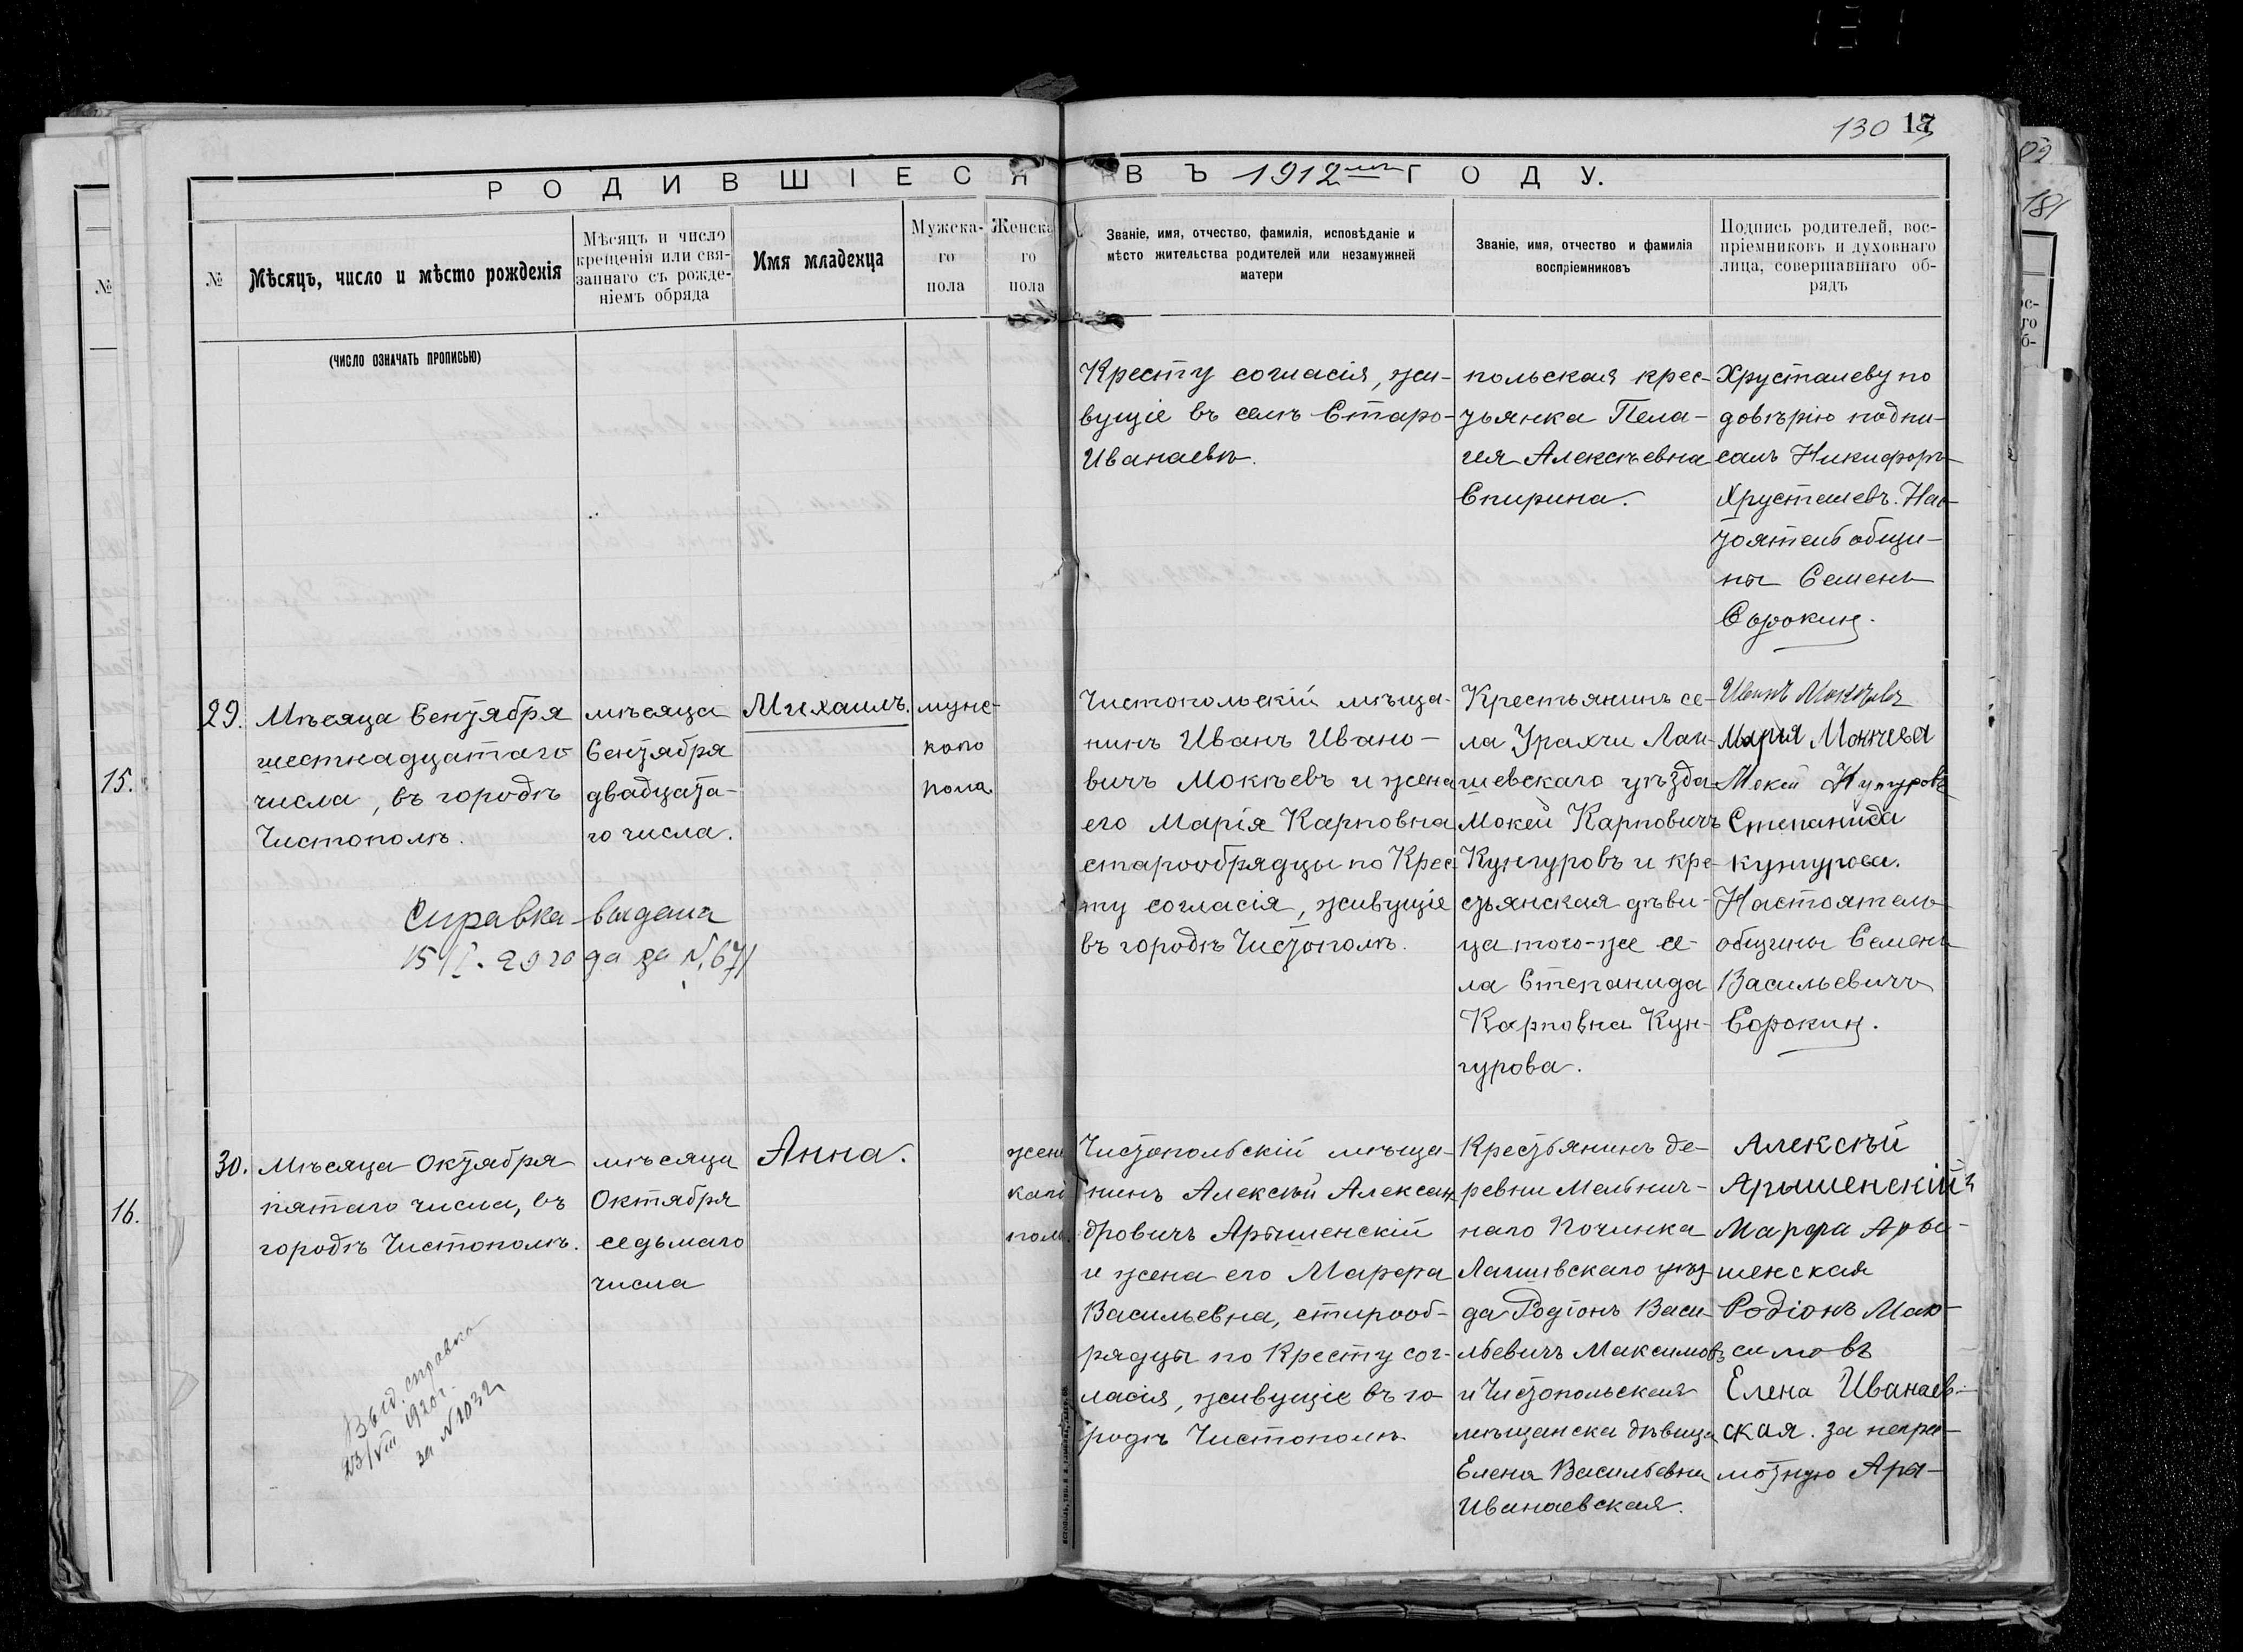 130 17
РОДИВШІЕСЯ ВЪ 1912мъ ГОДУ.
№
Мѣсяцъ, число и мѣсто рожденія
Мѣсяцъ и число
крещенія или свя-
заннаго съ рожде-
ніемъ обряда
Имя младенца
Мужска-
го
пола
Женска
го
пола
Званіе, имя, отчество, фамилія, исповѣданіе и
мѣсто жительства родителей или незамужней
матери
Званіе, имя, отчество и фамилія
воспріемниковъ
Подпись родителей, вос-
пріемниковъ и духовнаго
лица, совершавшаго об-
рядъ
(ЧИСЛО ОЗНАЧАТЬ ПРОПИСЬЮ)
Кресту согласія, жи-
вущіе въ селѣ Старо-
Иванаевѣ.
польская крес-
тьянка Пела-
гея Алексѣевна
Спирина.
Хрусталеву по
довѣрію подпи-
салъ Никифоръ
Хрусталевъ. Нас-
тоятель общи-
ны Семенъ
Сорокинъ.
29.
Мѣсяца Сентября
шестнадцатаго
числа, въ городѣ
Чистополѣ.
мѣсяца
Сентября
двадцата-
го числа.
Михаилъ.
мужс-
кого
пола
Чистопольскій мѣща-
нинъ Иванъ Ивано-
вичъ Мокѣевъ и жена
его Марія Карповна
старообрядцы по Крес-
ту согласія, живущіе
въ городѣ Чистополѣ.
Крестьянинъ се-
ла Урахчи Лаи-
шевскаго уѣзда
Мокей Карповичъ
Кунгуровъ и кре-
стьянская дѣви-
ца того-же се-
ла Степанида
Карповна Кун-
гурова.
Иванъ Мокѣевъ
Марья Мокѣева
Мокей Кунгуровъ
Степанида
кунгурова.
Настоятель
общины Семенъ
Васильевичъ
Сорокинъ.
Справка выдана
15/I. 20 года за №671
30.
Мѣсяца Октября
пятаго числа, въ
городѣ Чистополѣ.
мѣсяца
Октября
седьмаго
числа
Анна.
женс
каго
пола.
Чистопольскій мѣща-
нинъ Алексѣй Алексан-
дровичъ Арышенскій
и жена его Марфа
Васильевна, старооб-
рядцы по Кресту сог-
ласія, живущіе въ го-
родѣ Чистополѣ
Крестьянинъ де-
ревни Мельнич-
наго Починка
Лаишевскаго уѣз-
да Родіонъ Васи-
льевичъ Максимовъ
и Чистопольская
мѣщанска дѣвица
Елена Васильевна
Иванаевская.
Алексѣй
Арышенскій
Марфа Ары-
шенская
Родіонъ Мак-
симовъ
Елена Иванаев-
ская. За негра-
мотную Ары-
Выд. справка
23/VIII 1920 г.
за №1032
15.
16.
№
181